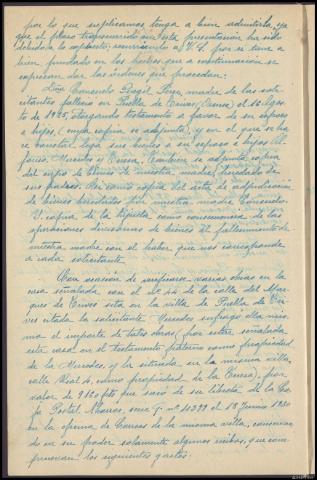 por lo que suplicamos tenga a bien admitirla, ya
que el plazo transcurrido en esta presentación ha sido
debido a lo expuesto, a V.S. por si tiene a
bien fundado en los hechos que a continuación se
expresan dar las órdenes que procedan:
Dña Consuelo Rogil Pérez madre de las soli-
citantes falleció en Puebla de Trives, (Orense) el 10 Agos-
to de 1925, otorgando testamento a favor de su esposo
e hijos, (cuya copia se adjunta), y en el que se ha-
ce constar, lega sus bienes a su esposo e hijos Al-
fonso, Mercedes y Teresa. También se adjunta copia
del de bienes de nuestra madre, heredado de
sus padres. Así como copia del acta de adjudicación
de bienes heredados por nuestra madre Consuelo.
Y copia de la hijuela como consecuencia de las
operaciones divisorias de bienes al fallecimiento de
nuestra madre con el haber, que nos corresponde
a cada solicitante.
Con ocasión de varias obras en la
casa señalada con el nº 44 de la calle del Mar-
ques de Trives sita en la villa de Puebla de Tri-
ves citada la solicitante Mercedes sufragó ella mis-
ma el importe de tales obras, (por estar señalada
esta casa en el testamento paterno como propiedad
de la Mercedes, y la situada en la misma villa,
calle Real 4, como propiedad de la Teresa), por
valor de 9120 pts que sacó de su libreta de la Ca-
ja Postal Ahorros, serie nº 11399 el 18 Junio 1920
en la oficina de Correos de la misma villa, conservan-
do en su poder solamente algunos recibos, que com-
prueban los siguientes gastos: